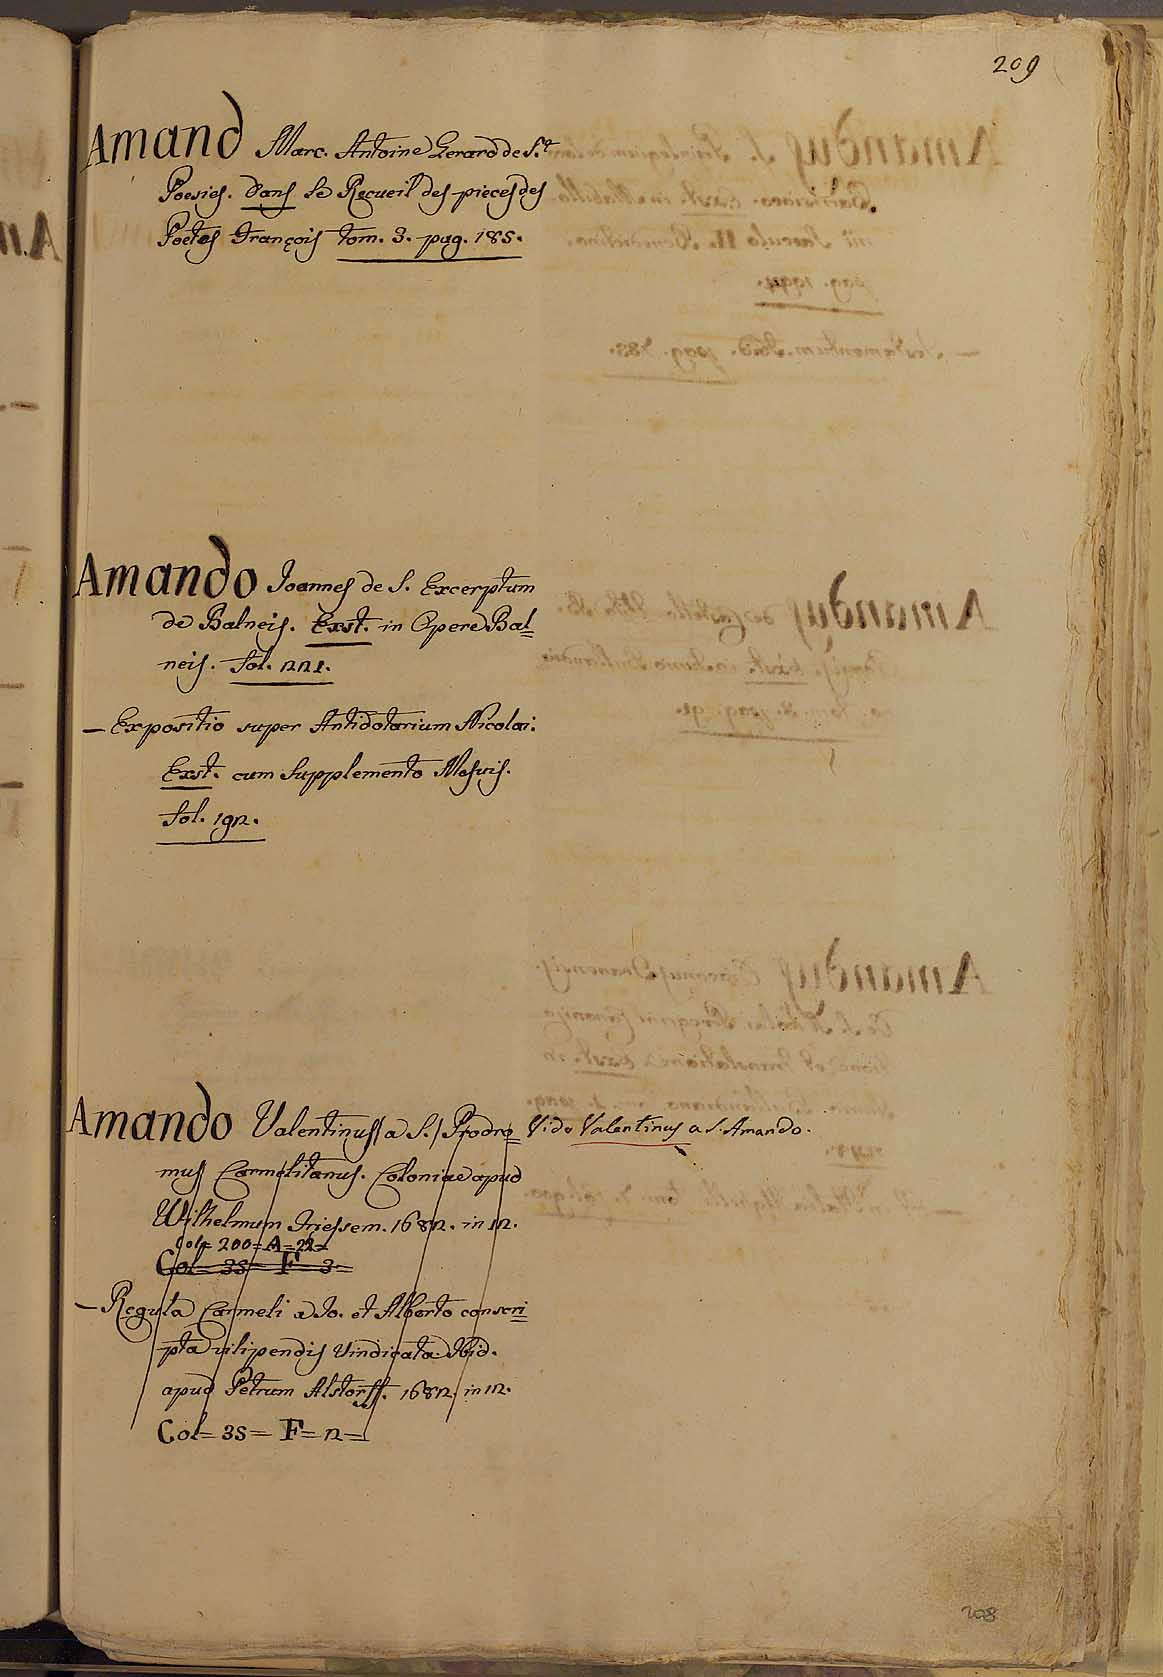 209
Amand Marc. Antoine Gerard de S.t
Poesies. Dans le Recueil des pieces des
Poetes François tom. 3. pag. 185.
Amando Ioannes de S. Excerptum
de Balneis. Exst. in Opere Bal=
neis. fol. 221.
— Expositio super Antidotarium Nicolai.
Exst. cum Supplemento Mesuis.
fol. 192.
Amando Valentinus (a S.) Prodro= Vide Valentinus a S. Amando.
mus Carmelitanus. Coloniae apud
Wilhelmum Friessem. 1682. in 12.
Col= 200= A= 22=
Col= 35= F= 3=
— Regula Carmeli a Io. et Alberto conscri=
pta vilipendiis vindicata. Ibid.
apud Petrum Alstorff. 1682. in 12.
Col= 35= F= 2=
208